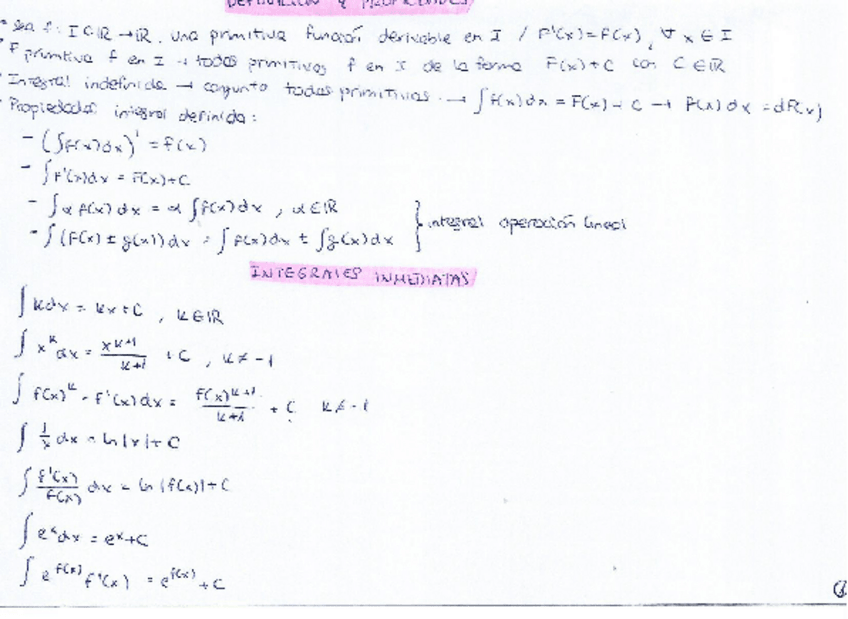 DEFINICIÓN Y PROPIEDADES
* Sea f: I⊂ℝ → ℝ, una primitiva función derivable en I / F'(x)=f(x), ∀ x ∈ I
* F primitiva f en I → todas primitivas f en I de la forma F(x)+C con C ∈ ℝ
* Integral indefinida → conjunto todas primitivas → ∫f(x)dx = F(x)+C → F'(x)dx = dF(x)
* Propiedades integral definida:
- (∫f(x)dx)' = f(x)
- ∫F'(x)dx = F(x)+C
- ∫α f(x) dx = α ∫f(x)dx , α∈ℝ
- ∫(f(x) ± g(x)) dx = ∫f(x)dx ± ∫g(x)dx } integral operación lineal
INTEGRALES INMEDIATAS
∫k dx = kx+C , k∈ℝ
∫x^k dx = x^(k+1)/(k+1) + C , k≠-1
∫f(x)^k · f'(x) dx = f(x)^(k+1)/(k+1) + C k≠-1
∫1/x dx = ln|x| + C
∫f'(x)/f(x) dx = ln|f(x)| + C
∫e^x dx = e^x + C
∫e^f(x) f'(x) = e^f(x) + C